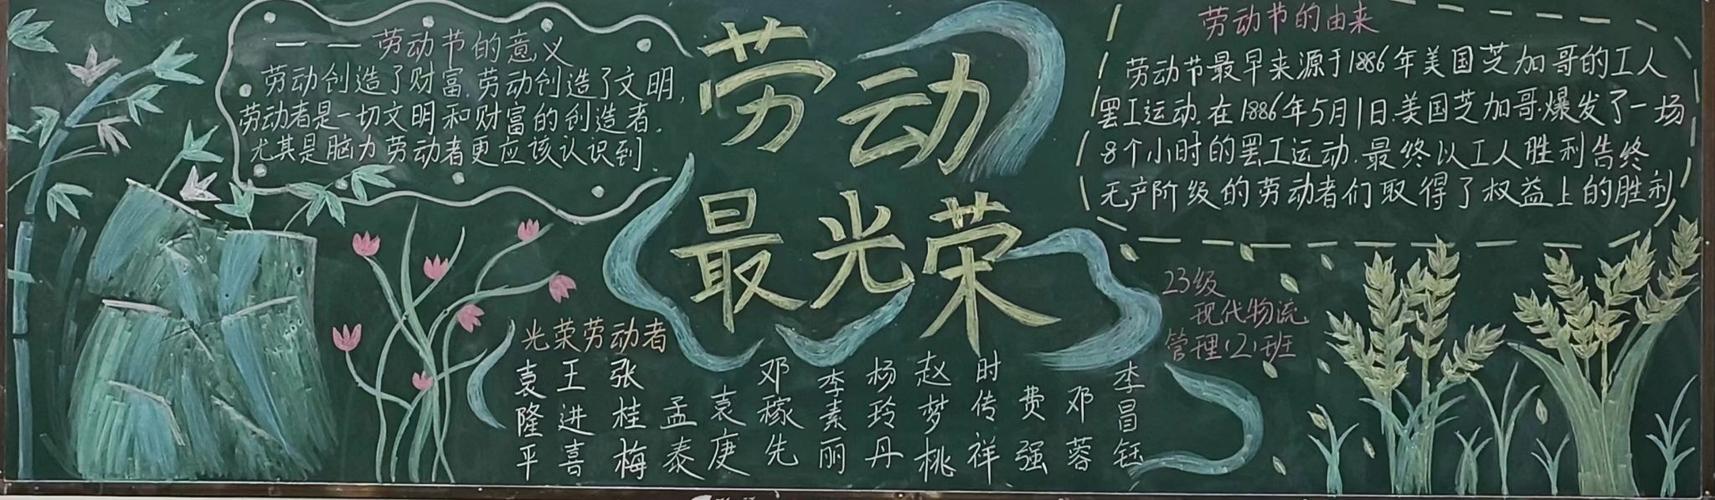 ——劳动节的意义
劳动创造了财富,劳动创造了文明,
劳动者是一切文明和财富的创造者.
尤其是脑力劳动者更应该认识到.
劳动
最光荣
劳动节的由来
劳动节最早来源于1886年美国芝加哥的工人
罢工运动.在1886年5月1日美国芝加哥爆发了一场
8个小时的罢工运动.最终以工人胜利告终
无产阶级的劳动者们取得了权益上的胜利
23级
现代物流
管理(2)班
光荣劳动者
袁隆平
王进喜
张桂梅
孟泰
袁庚
邓稼先
李素丽
杨玲丹
赵梦桃
时传祥
费强
邓蓉
李昌钰